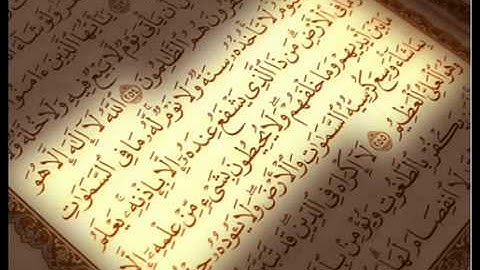 يَٰٓأَيُّهَا ٱلَّذِينَ ءَامَنُوٓا۟
يَأْتِىَ يَوْمٌ لَّا بَيْعٌ فِيهِ وَلَا خُلَّةٌ وَلَا
هُمُ ٱلظَّٰلِمُونَ ٢٥٤ ٱللَّهُ لَآ إِلَٰهَ إِلَّا هُوَ
تَأْخُذُهُۥ سِنَةٌ وَلَا نَوْمٌ لَّهُۥ مَا فِى ٱلسَّمَٰوَٰتِ
فِى ٱلْأَرْضِ مَن ذَا ٱلَّذِى يَشْفَعُ عِندَهُۥٓ إِلَّا بِإِذْنِهِۦ يَعْلَمُ
بَيْنَ أَيْدِيهِمْ وَمَا خَلْفَهُمْ وَلَا يُحِيطُونَ بِشَىْءٍ مِّنْ عِلْمِهِۦٓ إِلَّا
بِمَا شَآءَ وَسِعَ كُرْسِيُّهُ ٱلسَّمَٰوَٰتِ وَٱلْأَرْضَ وَلَا يَـُٔودُهُۥ
وَهُوَ ٱلْعَلِىُّ ٱلْعَظِيمُ ٢٥٥ لَآ إِكْرَاهَ فِى ٱلدِّينِ قَد
يَكْفُرْ بِٱلطَّٰغُوتِ وَيُؤْمِنۢ
لَا ٱنفِصَامَ لَهَا